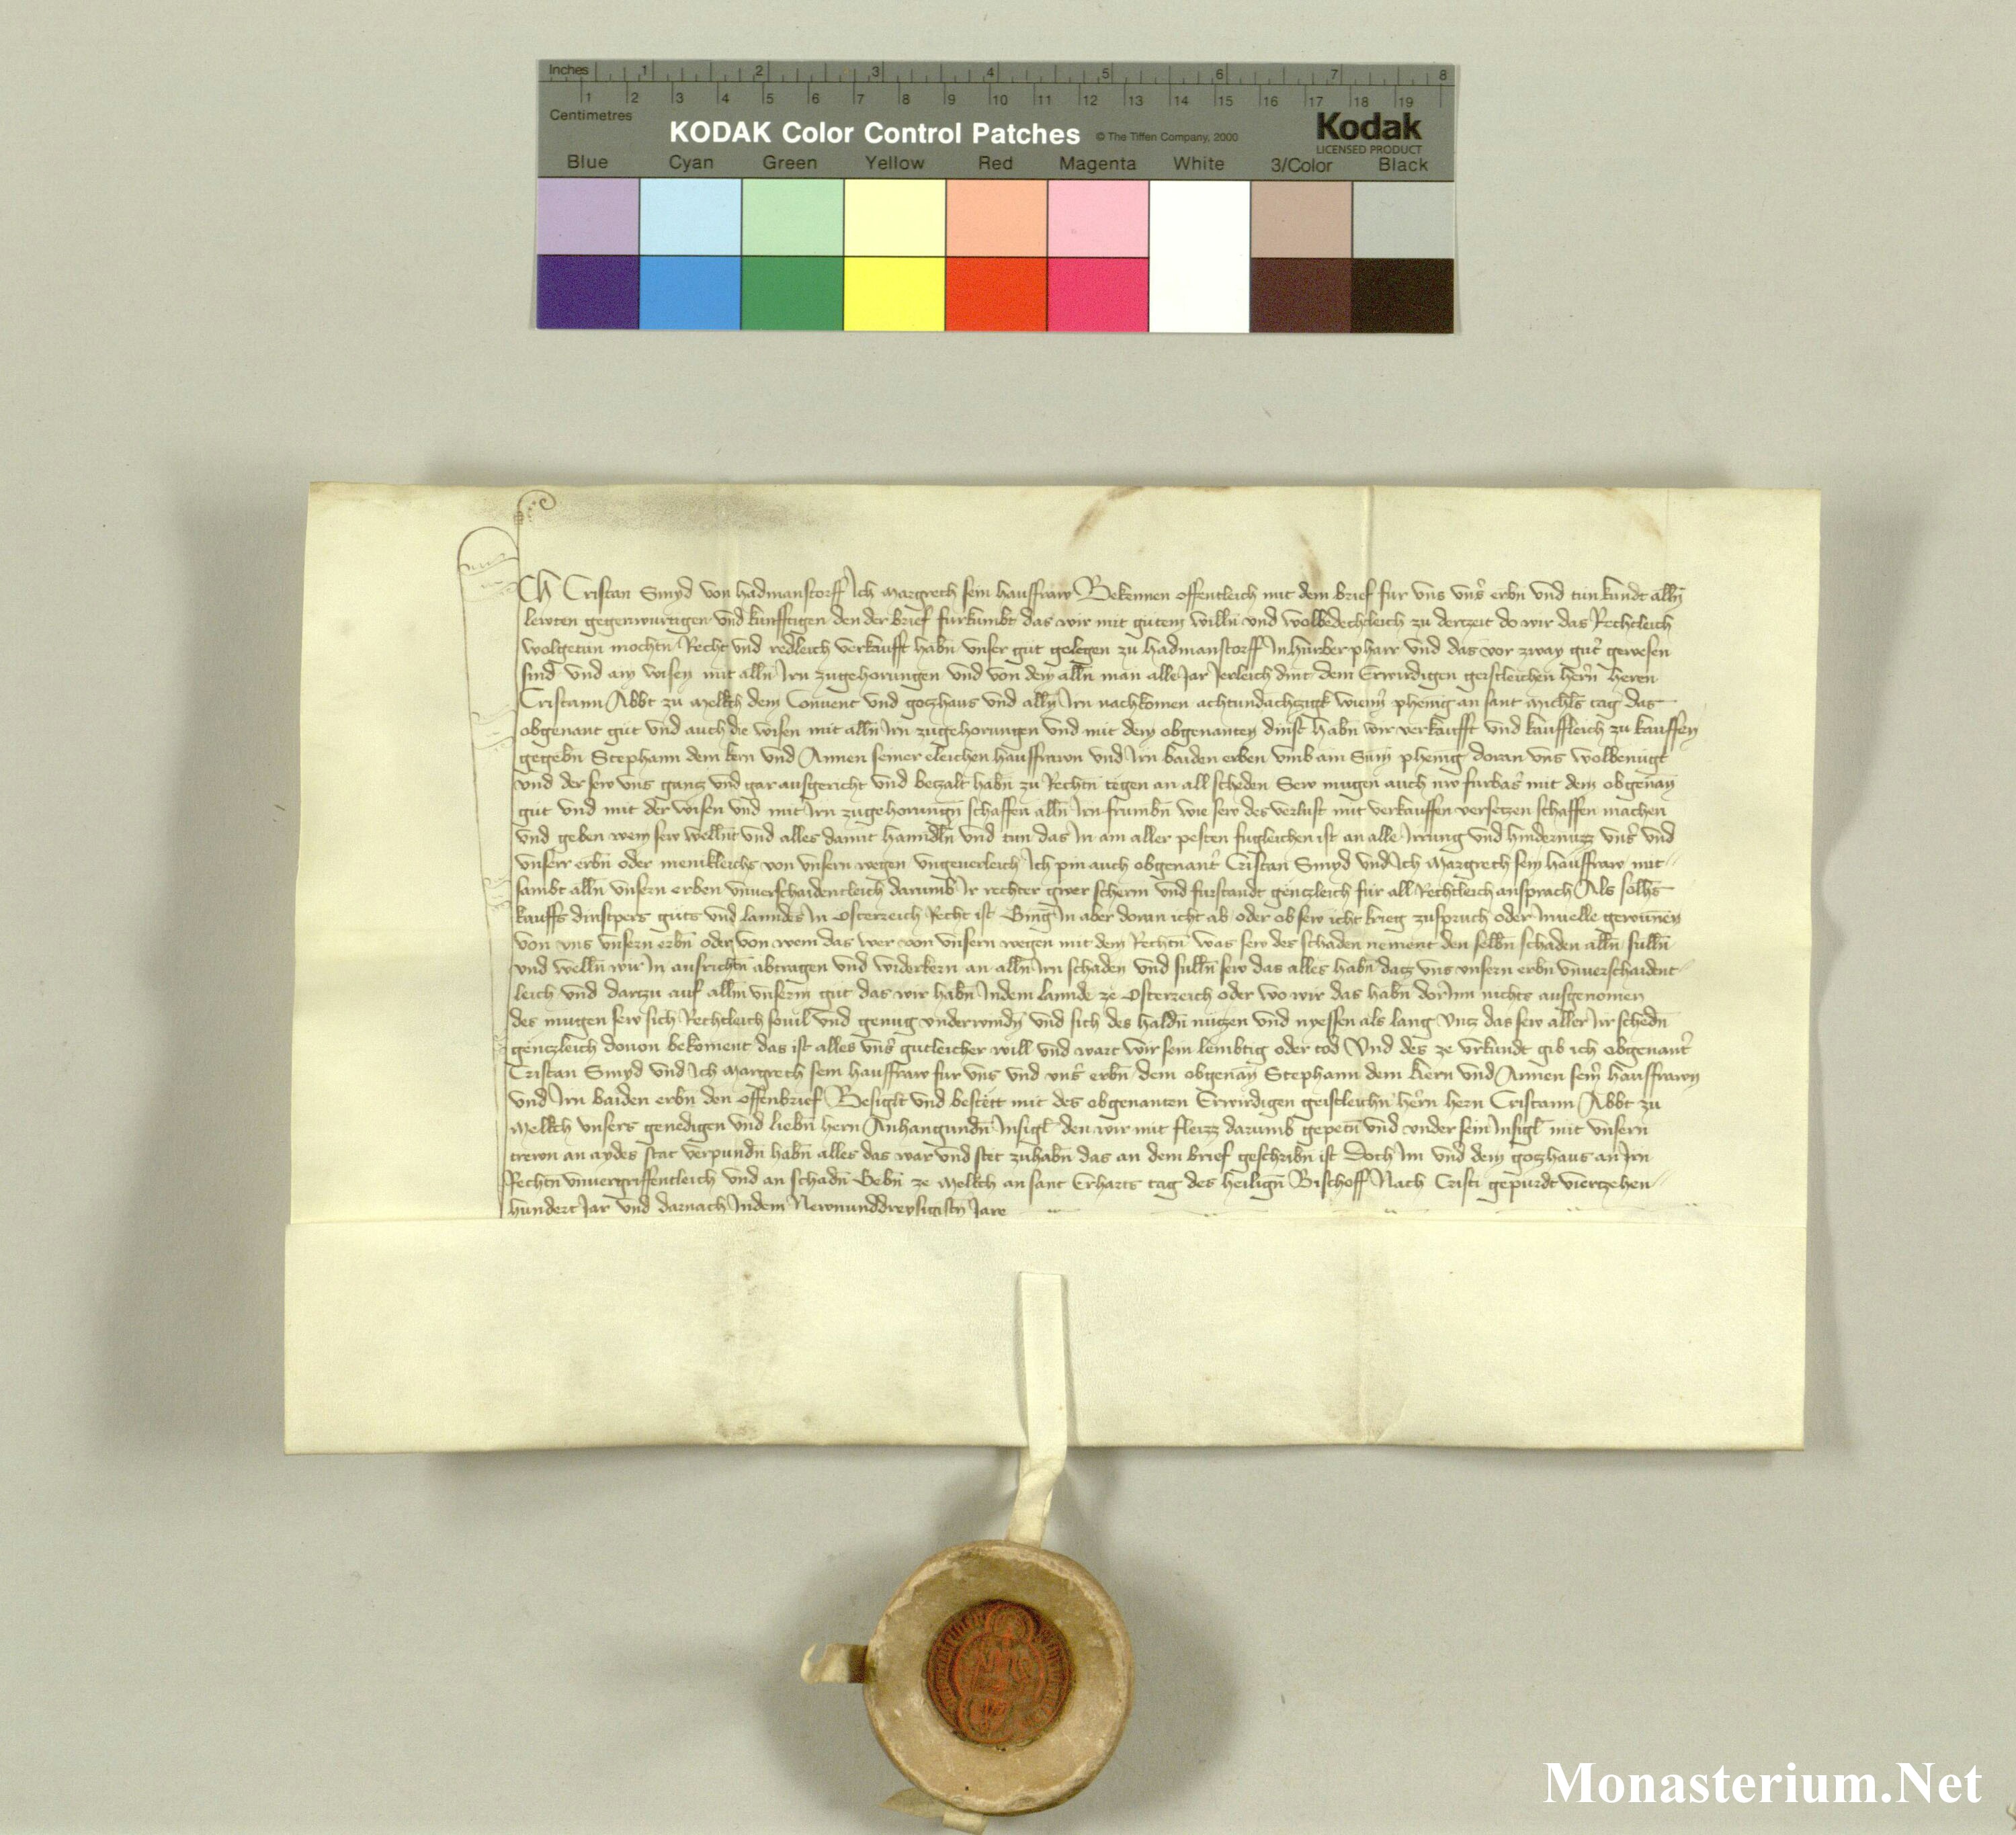 Inches 1 2 3 4 5 6 7 8
1 2 3 4 5 6 7 8 9 10 11 12 13 14 15 16 17 18 19
Centimetres
KODAK Color Control Patches © The Tiffen Company, 2000 Kodak
LICENSED PRODUCT
Blue Cyan Green Yellow Red Magenta White 3/Color Black
Ich Cristan Smyd von hadmanstorff Ich Margreth sein hausfraw Bekennen offentleich mit dem brief fur vns vns̉ erbn̄ vnd tun kundt alln̄
lewten gegenwurtigen vnd kunfftigen den der brief furkumbt das wir mit gutem willn̄ vnd wolbedechtleich zu dertzeit do wir das Rechtleich
wolgetun mochtn̄ Recht vnd redleich verkaufft habn̄ vnser gut gelegen zu hadmanstorff In hurber pharr vnd das vor zway gut̉ gewesen
sind vnd ain wisen mit alln̄ Irn zugehorungen vnd von dem alln̄ man alle Jar Jerleich dint dem Erwirdigen geistleichen hern̉ heren
Cristann Abbt zu Melkch dem Conuent vnd gotzhaus vnd alln̄ Irn nachkomen achtundachtzigk wienn̉ phenig an sant Michls tag das
obgenant gut vnd auch die wisen mit alln̄ Irn zugehorungen vnd mit dem obgenanten dinst habn̄ wir verkaufft vnd kauffleich zu kauffen
gegebn̄ Stephann dem kern vnd Annen seiner eleichen hausfrawn vnd Irn baiden erben vmb ain Sum̄ phenig doran vns wolbenugt
vnd der sew vns gantz vnd gar ausgericht vnd betzalt habn̄ zu Rechtn̄ tegen an all scheden Sew mugen auch nw furbas̉ mit dem obgenan̄
gut vnd mit der wisen vnd mit Irn zugehorungn̄ schaffen alln̄ Irn frumbn̄ wie sew des verlust mit verkauffen versetzen schaffen machen
vnd geben wem sew wellnt vnd alles damit hanndln̄ vnd tun das In am aller pesten fugleichen ist an alle Irrung vnd hindernuzz vns̉ vnd
vnserr erbn̄ oder menikleichs von vnsern wegen vngeuerleich Ich pin auch obgenant̉ Cristan Smyd vnd Ich Margreth sein hausfraw mit
sambt alln̄ vnsern erben vnuerschaidentleich darumb Ir rechter gwer scherm vnd furstandt gentzleich fur all Rechtleich ansprach Als solhs
kauffs dinstpers guts vnd lanndes In Osterreich Recht ist Ging In aber doran icht ab oder ob sew icht krieg zuspruch oder Inuelle gewunnen
von vns vnsern erbn̄ oder von wem das wer von vnsern wegen mit dem Rechtn̄ was sew des schaden nement den selbn̄ schaden alln̄ sulln̄
vnd welln̄ wir In ausrichtn̄ abtragen vnd widerkern an alln̄ Irn schaden vnd sulln̄ sew das alles habn̄ datz vns vnsern erbn̄ vnuerschaident
leich vnd dartzu auf allm vnserm gut das wir habn̄ In dem lannde ze Osterreich oder wo wir das habn̄ dor Inn nichts ausgenomen
des mugen sew sich Rechtleich souil vnd genug vnderwindn̄ vnd sich des haldn̄ nutzen vnd nyessen als lang vntz das sew aller Irr schedn̄
gentzleich douon bekoment das ist alles vns̉ gutleicher will vnd wart wir sein lembtig oder tod Vnd des ze vrkundt gib ich obgenant̉
Cristan Smyd vnd Ich Margreth sein hausfraw fur vns vnd vns̉ erbn̄ dem obgenan̄ Stephann dem kern vnd Annen sein̉ hausfrawn
vnd Irn baiden erbn̄ den offenbrief Besiglt vnd bestett mit des obgenanten Erwirdigen geistleichn̄ hern̉ hern Cristann Abbt zu
Melkch vnsers genedigen vnd liebn̄ hern Anhangundn̄ Insigl den wir mit fleizz darumb gepetn̄ vnd vnder sein Insigl mit vnsern
trewn an aydes stat verpundn̄ habn̄ alles das war vnd stet zuhabn̄ das an dem brief geschribn̄ ist Doch Im vnd dem gotzhaus an Irn
Rechtn̄ vnuergriffentleich vnd an schadn̄ Gebn̄ ze Melkch an sant Erharts tag des heilign̄ Bischoff Nach Cristi gepurdt viertzehen
hundert Jar vnd darnach In dem Newnunddreysigistn̄ Jare
Monasterium.Net